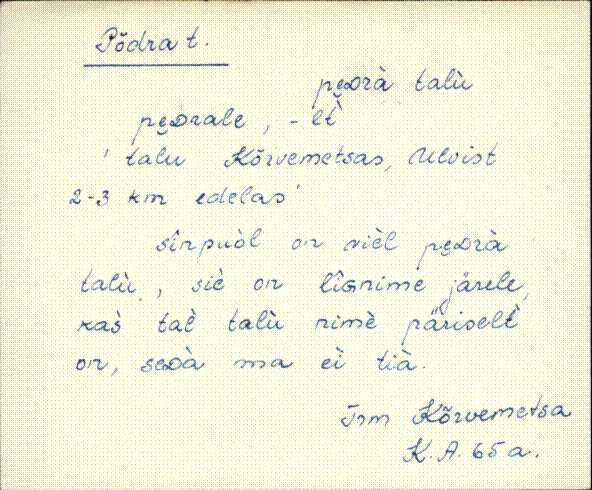 Põdra t.
pe̮Drà talù
pe̮Drale, -lt̀
' talu Kõrvemetsas, Ulvist
2-3 km edelas'
sînpuòl on vièl pe̮Drà
talù, siè on lîGnime jàrele,
kas̀ tal̀ talù nimè päriselt̀
on, seDà ma eì tià.
Trm Kõrvemetsa
K.A. 65 a.